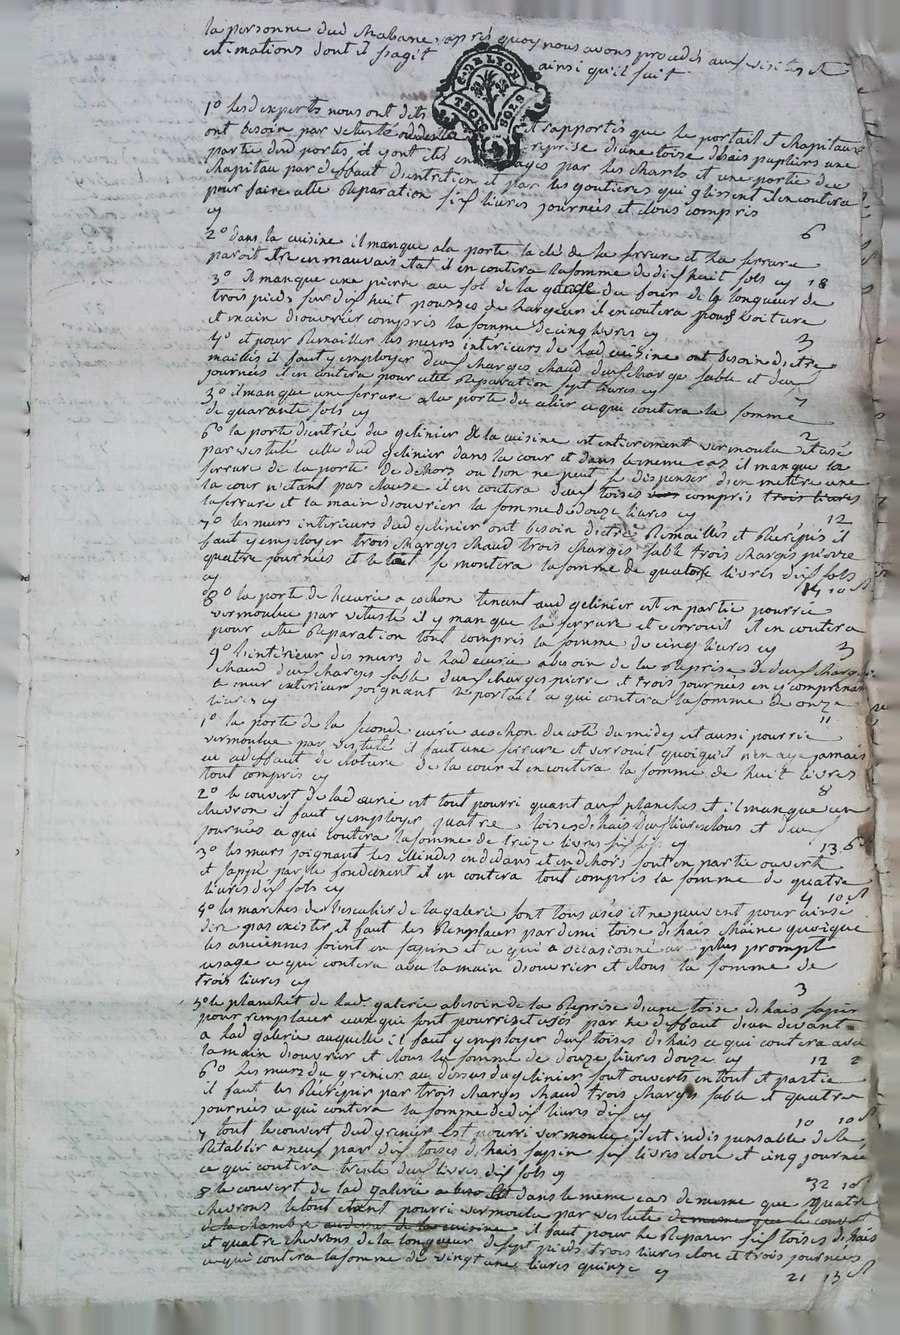 la personne dud Chabane, apres quoy nous avons procédés aux visites et
estimations dont il s'agit ainsi qu'il suit
G. DE LYON
TROIS SOLS
1º Lesd experts nous ont dits et rapportés que le portail et chapitaux
ont besoin par vetusté reprise d'une toise d'hais pupliers une
partie dud portes, il y ont été par les chards et une partie du
chapitau par deffaut d'entretien et par les goutieres qui glissent il en coutera
pour faire cette Reparation six livres journées et clous compris
cy 6
2º dans la cuisine il manque a la porte la clé de la serrure et la serrure
paroit etre en mauvais etat il en coutera la somme de dix huit sols cy 18
3º il manque une pierre au sol de la du foier de la longueur de
trois pieds sur dix huit pousses de largeur il en coutera pour voiture
et main d'ouvrier compris la somme de cinq livres cy 5
4º et pour Remailler les murs interieurs de lad cuisine ont besoin d'etre
maillés il faut y employer deux charges chaud deux charge sable et deux
journées il en coutera pour cette Reparation sept livres cy 7
5º il manque une serrure a la porte du celier ce qui coutera la somme
de quarante sols cy 2
6º la porte d'entrée du gelinier de la cuisine est entierement vermoulu et usé
par vestuté celle dud gelinier dans la cour et dans le meme cas il manque la
serrure de la porte de dehors ou l'on ne peut se dispenser d'en mettre une
la cour n'etant pas clause il en coutera deux toises compris trois livres
la serrure et la main d'ouvrier la somme de douze livres cy 12
7º les murs interieurs dud gelinier ont besoin d'etre Remaillés et Recrépis il
faut y employer trois charges chaud trois charges sable trois charges pierre
quatre journées et le tout se montera la somme de quatorse livres dix sols
cy 14 10 s
8º la porte de l'ecurie a cochon tenant aud gelinier est en partie pourrie
vermoulue par vetusté il y manque la serrure et verrouil il en coutera
pour cette Reparation tout compris la somme de cinq livres cy 5
9º l'interieur des murs de lad ecurie a besoin de la Reprise de deux charges
chaud deux charges sable deux charges pierre et trois journées en y comprenant
le mur exterieur joignant le portail ce qui coutera la somme de onze
livres cy 11
1º la porte de la seconde ecurie au cochon du coté du midy est aussi pourrie
vermoulue par vestuté il faut une serrure et verrouil quoiqu'il n'en aye jamais
eu au deffaut de cloture de la cour il en coutera la somme de huit livres
tout compris cy 8
2º le couvert de lad ecurie est tout pourri quant aux planches et il manque un
chevron il faut y employer quatre toises d'hais deux livres clous et deux
journées ce qui coutera la somme de treize livres six sols cy 13 6 s
3º les murs joignant les en dedans et en dehors sont en partie ouverts
et sappé par le fondement il en coutera tout compris la somme de quatre
livres dix sols cy 4 10 s
4º les marches de l'escalier de la galerie sont tous usés et ne peuvent pour ainsi
dire pas exister il faut les Remplacer par demi toise d'hais chaine quoique
les anciennes soient en sapin et ce qui a occasionné un plus prompt
usage ce qui coutera avec la main d'ouvrier et clous la somme de
trois livres cy 3
5º le planchet de lad galerie a besoin de la Reprise d'une toise d'hais sapin
pour remplacer ceux qui sont pourris et usés par le deffaut d'un devant
a lad galerie auquelle il faut y employer deux toises d'hais ce qui coutera avec
la main d'ouvrier et clous la somme de douze livres douze cy 12 2
6º les murs du grenier au dessus du gelinier sont ouverts en tout et partie
il faut les Recrépir par trois charges chaud trois charges sable et quatre
journées ce qui coutera la somme de dix livres dix cy 10 10 s
7 tout le couvert dud grenier est pourri vermoulu il est indispensable de le
Retablir a neuf par dix toises d'hais sapin six livres clou et cinq journée
ce qui coutera trente deux livres dix sols cy 32 10 s
8 le couvert de lad galerie dans le meme cas de meme que quatre
chevrons le tout etant pourri vermoulu par vestuté de meme que le couvert
de la chambre au dessus de la cuisine il faut pour le Reparer six toises d'hais
et quatre chevrons de la longueur de sept pieds trois livres clou et trois journées
ce qui coutera la somme de vingt une livres quinze cy 21 15 s